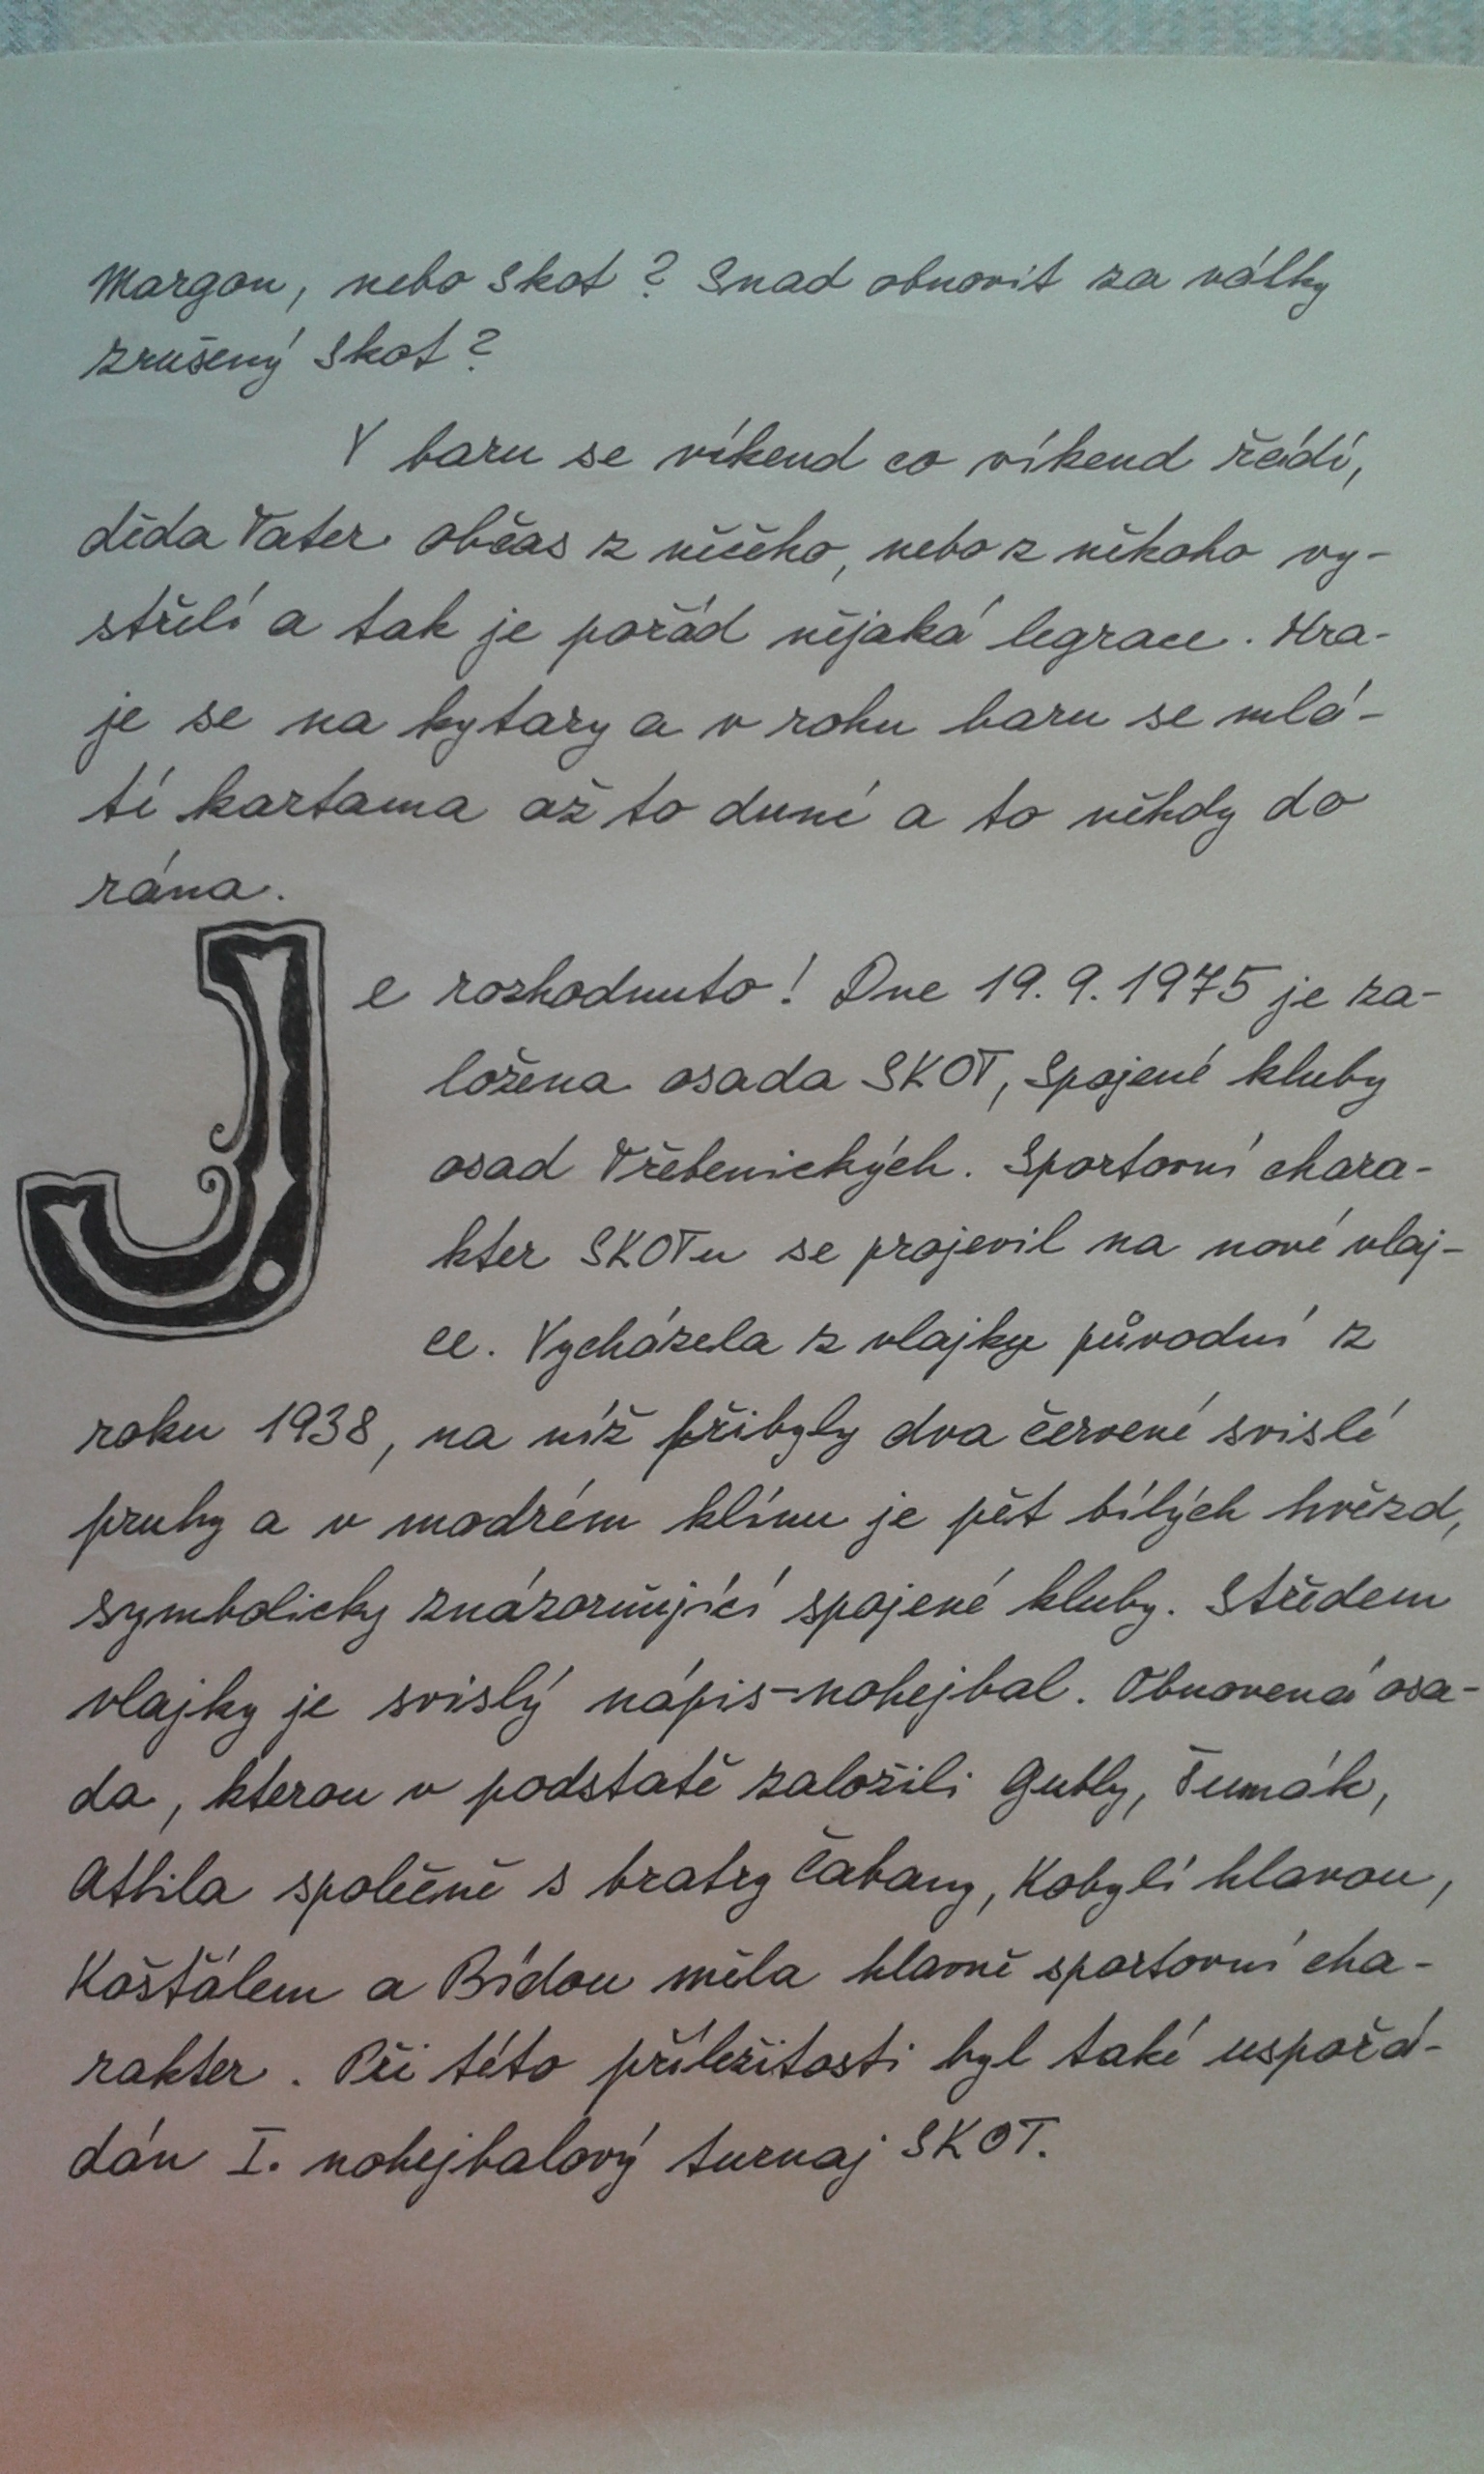 Margon, nebo Skot? Snad obnovit za války
zrušený Skot?
V baru se víkend co víkend řádí,
děda Vater občas z něčeho, nebo z někoho vy-
střelí a tak je pořád nějaká legrace. Hra-
je se na kytary a v rohu baru se mlá-
tí kartama až to duní a to někdy do
rána.
Je rozhodnuto! Dne 19.9.1975 je za-
ložena osada SKOT, Spojené kluby
osad Třebenických. Sportovní chara-
kter SKOTu se projevil na nové vlaj-
ce. Vycházela z vlajky původní z
roku 1938, na níž přibyly dva červené svislé
pruhy a v modrém klínu je pět bílých hvězd,
symbolicky znázorňující spojené kluby. Středem
vlajky je svislý nápis-nohejbal. Obnovená osa-
da, kterou v podstatě založili Gutly, Šumák,
Attila společně s bratry Čabany, Kobylí hlavou,
Košťálem a Bídou měla hlavně sportovní cha-
rakter. Při této příležitosti byl také uspořá-
dán I. nohejbalový turnaj SKOT.